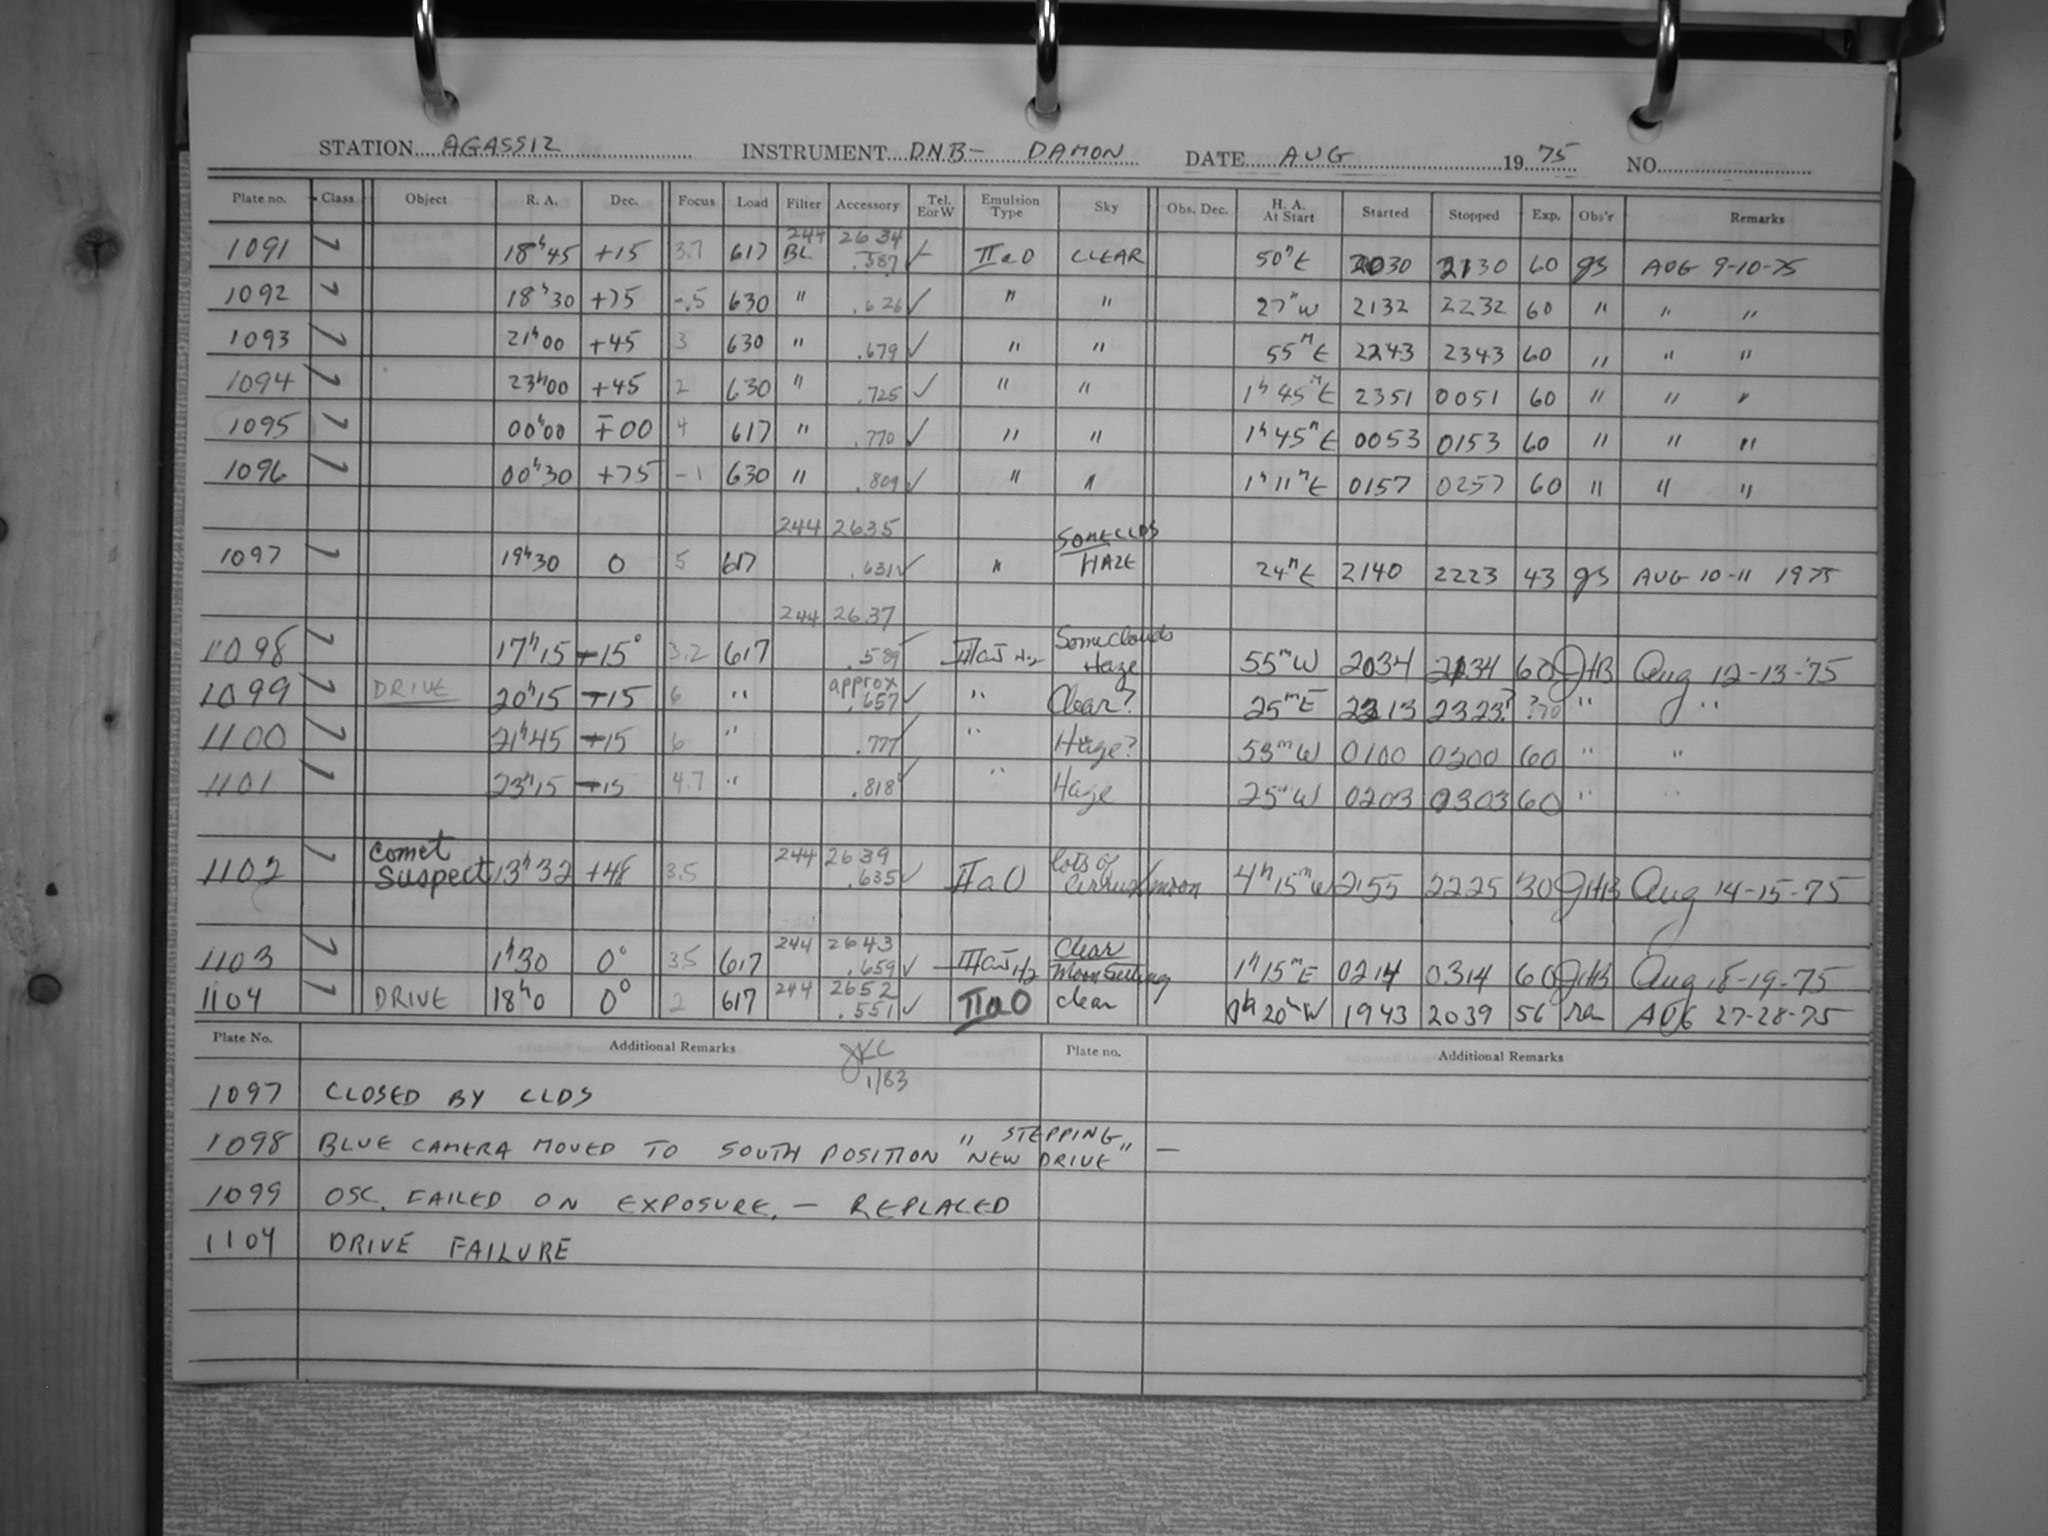 STATION AGASSIZ INSTRUMENT DNB- DAMON DATE AUG 19 75 NO.
Plate no. Class Object R. A. Dec. Focus Load Filter Accessory Tel. E or W Emulsion Type Sky Obs. Dec. H. A. At Start Started Stopped Exp. Obs'r Remarks
244 2634
1091 18h45 +15 3.7 617 BL .587 ✓ IIaO CLEAR 50m E 2030 2130 60 gs AUG 9-10-75
1092 18h30 +75 -.5 630 " .626 ✓ " " 27m W 2132 2232 60 " " "
1093 21h00 +45 3 630 " .679 ✓ " " 55m E 2243 2343 60 " " "
1094 23h00 +45 2 630 " .725 ✓ " " 1h 45m E 2351 0051 60 " " "
1095 00h00 ∓00 4 617 " .770 ✓ " " 1h 45m E 0053 0153 60 " " "
1096 00h30 +75 -1 630 " .809 ✓ " " 1h 11m E 0157 0257 60 " " "
244 2635 SOME CLDS
1097 19h30 0 5 617 .631 ✓ " HAZE 24m E 2140 2223 43 gs AUG 10-11 1975
244 2637
Some clouds
1098 17h15 +15° 3.2 617 .589 ✓ IIIaJ H2 Haze 55m W 2034 2134 60 JHB Aug 12-13-'75
approx
1099 DRIVE 20h15 +15 6 " .657 ✓ " Clear? 25m E 2213 2323? ?70 " "
1100 21h45 +15 6 " .777 ✓ " Haze? 53m W 0100 0200 60 " "
1101 23h15 +15 4.7 " .818 ✓ " Haze 25m W 0203 0303 60 " "
Comet 244 2639 lots of
1102 Suspect 13h32 +48 3.5 .635 ✓ IIaO cirrus/moon 4h 15m W 2155 2225 30 JHB Aug 14-15-75
244
244 2643 Clear
1103 1h30 0° 3.5 617 .659 ✓ IIIaJ H2 Moon Setting 1h 15m E 0214 0314 60 JHB Aug 18-19-75
244 2652
1104 DRIVE 18h0 0° 2 617 .551 ✓ IIaO clear 0h 20m W 1943 2039 56 ra AUG 27-28-75
Plate No. Additional Remarks JKC Plate no. Additional Remarks
1/83
1097 CLOSED BY CLDS
" STEPPING "
1098 BLUE CAMERA MOVED TO SOUTH POSITION "NEW DRIVE" —
1099 OSC. FAILED ON EXPOSURE. — REPLACED
1104 DRIVE FAILURE